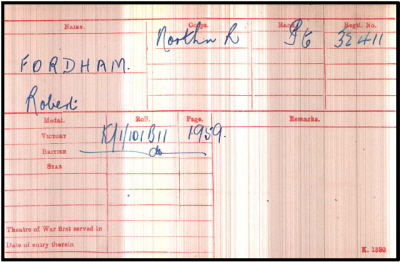 Name. Corps. Rank. Regtl. No.
North'n R Pte 32411
FORDHAM.
Robert
Medal. Roll. Page. Remarks.
VICTORY K/1/101B11 1959.
BRITISH do
STAR
Theatre of War first served in
Date of entry therein
K. 1380